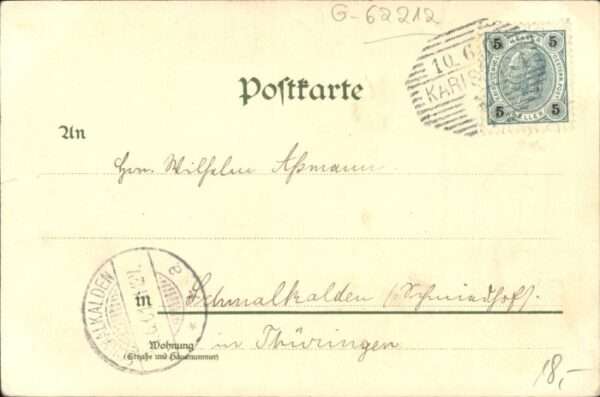 G-62212
10. 6
KARLS
5 5
5 5
HELLER
Postkarte
An
Hrn. Wilhelm Aßmann
SCHMALKALDEN
in Schmalkalden (Schmiedhof).
Wohnung
(Straße und Hausnummer)
in Thüringen
18,-